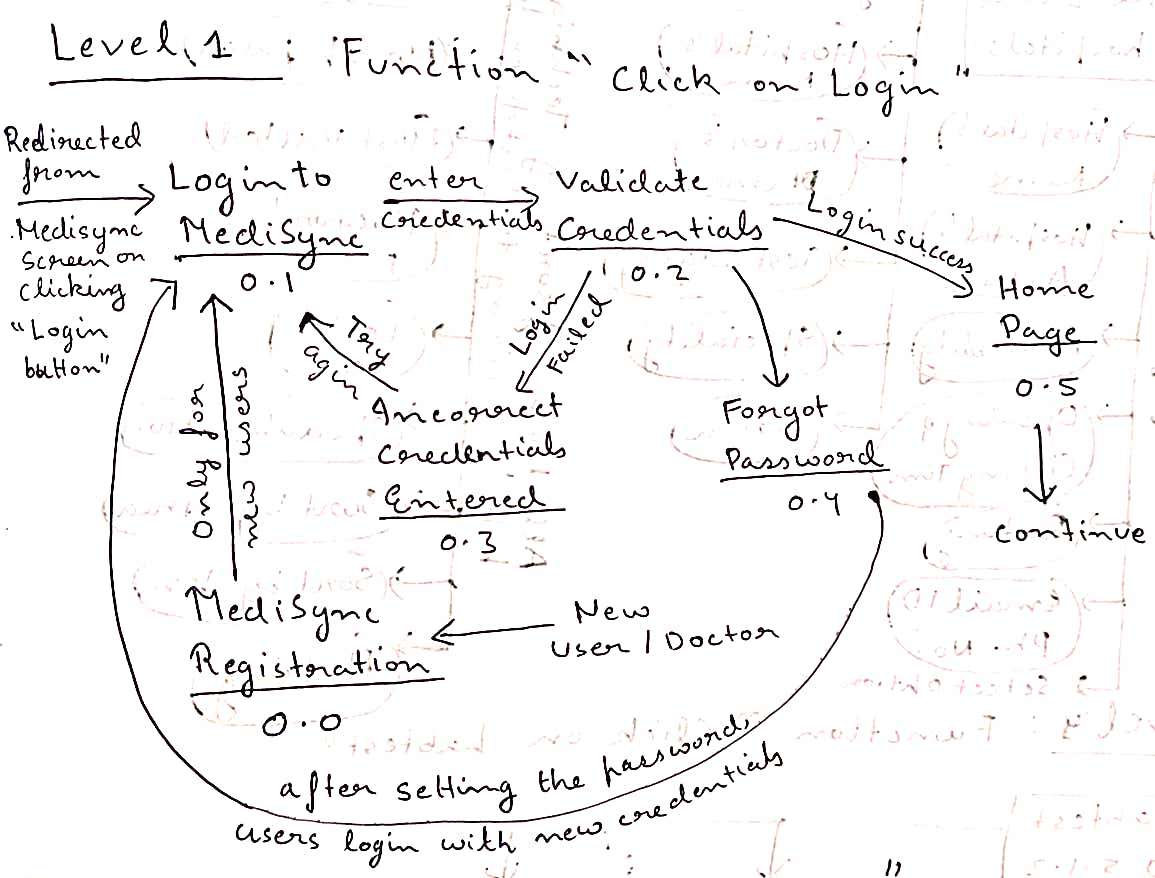 Level 1 : Function "Click on Login"
Redirected
from
Medisync
Screen on
clicking
"Login
button"
Login to
MediSync
0.1
enter
credentials
Validate
Credentials
0.2
Login success
Home
Page
0.5
continue
Login
Failed
Try
agin
Incorrect
credentials
Entered
0.3
Forgot
Password
0.4
Only for
new users
MediSync
Registration
0.0
New
User / Doctor
after setting the password,
users login with new credentials